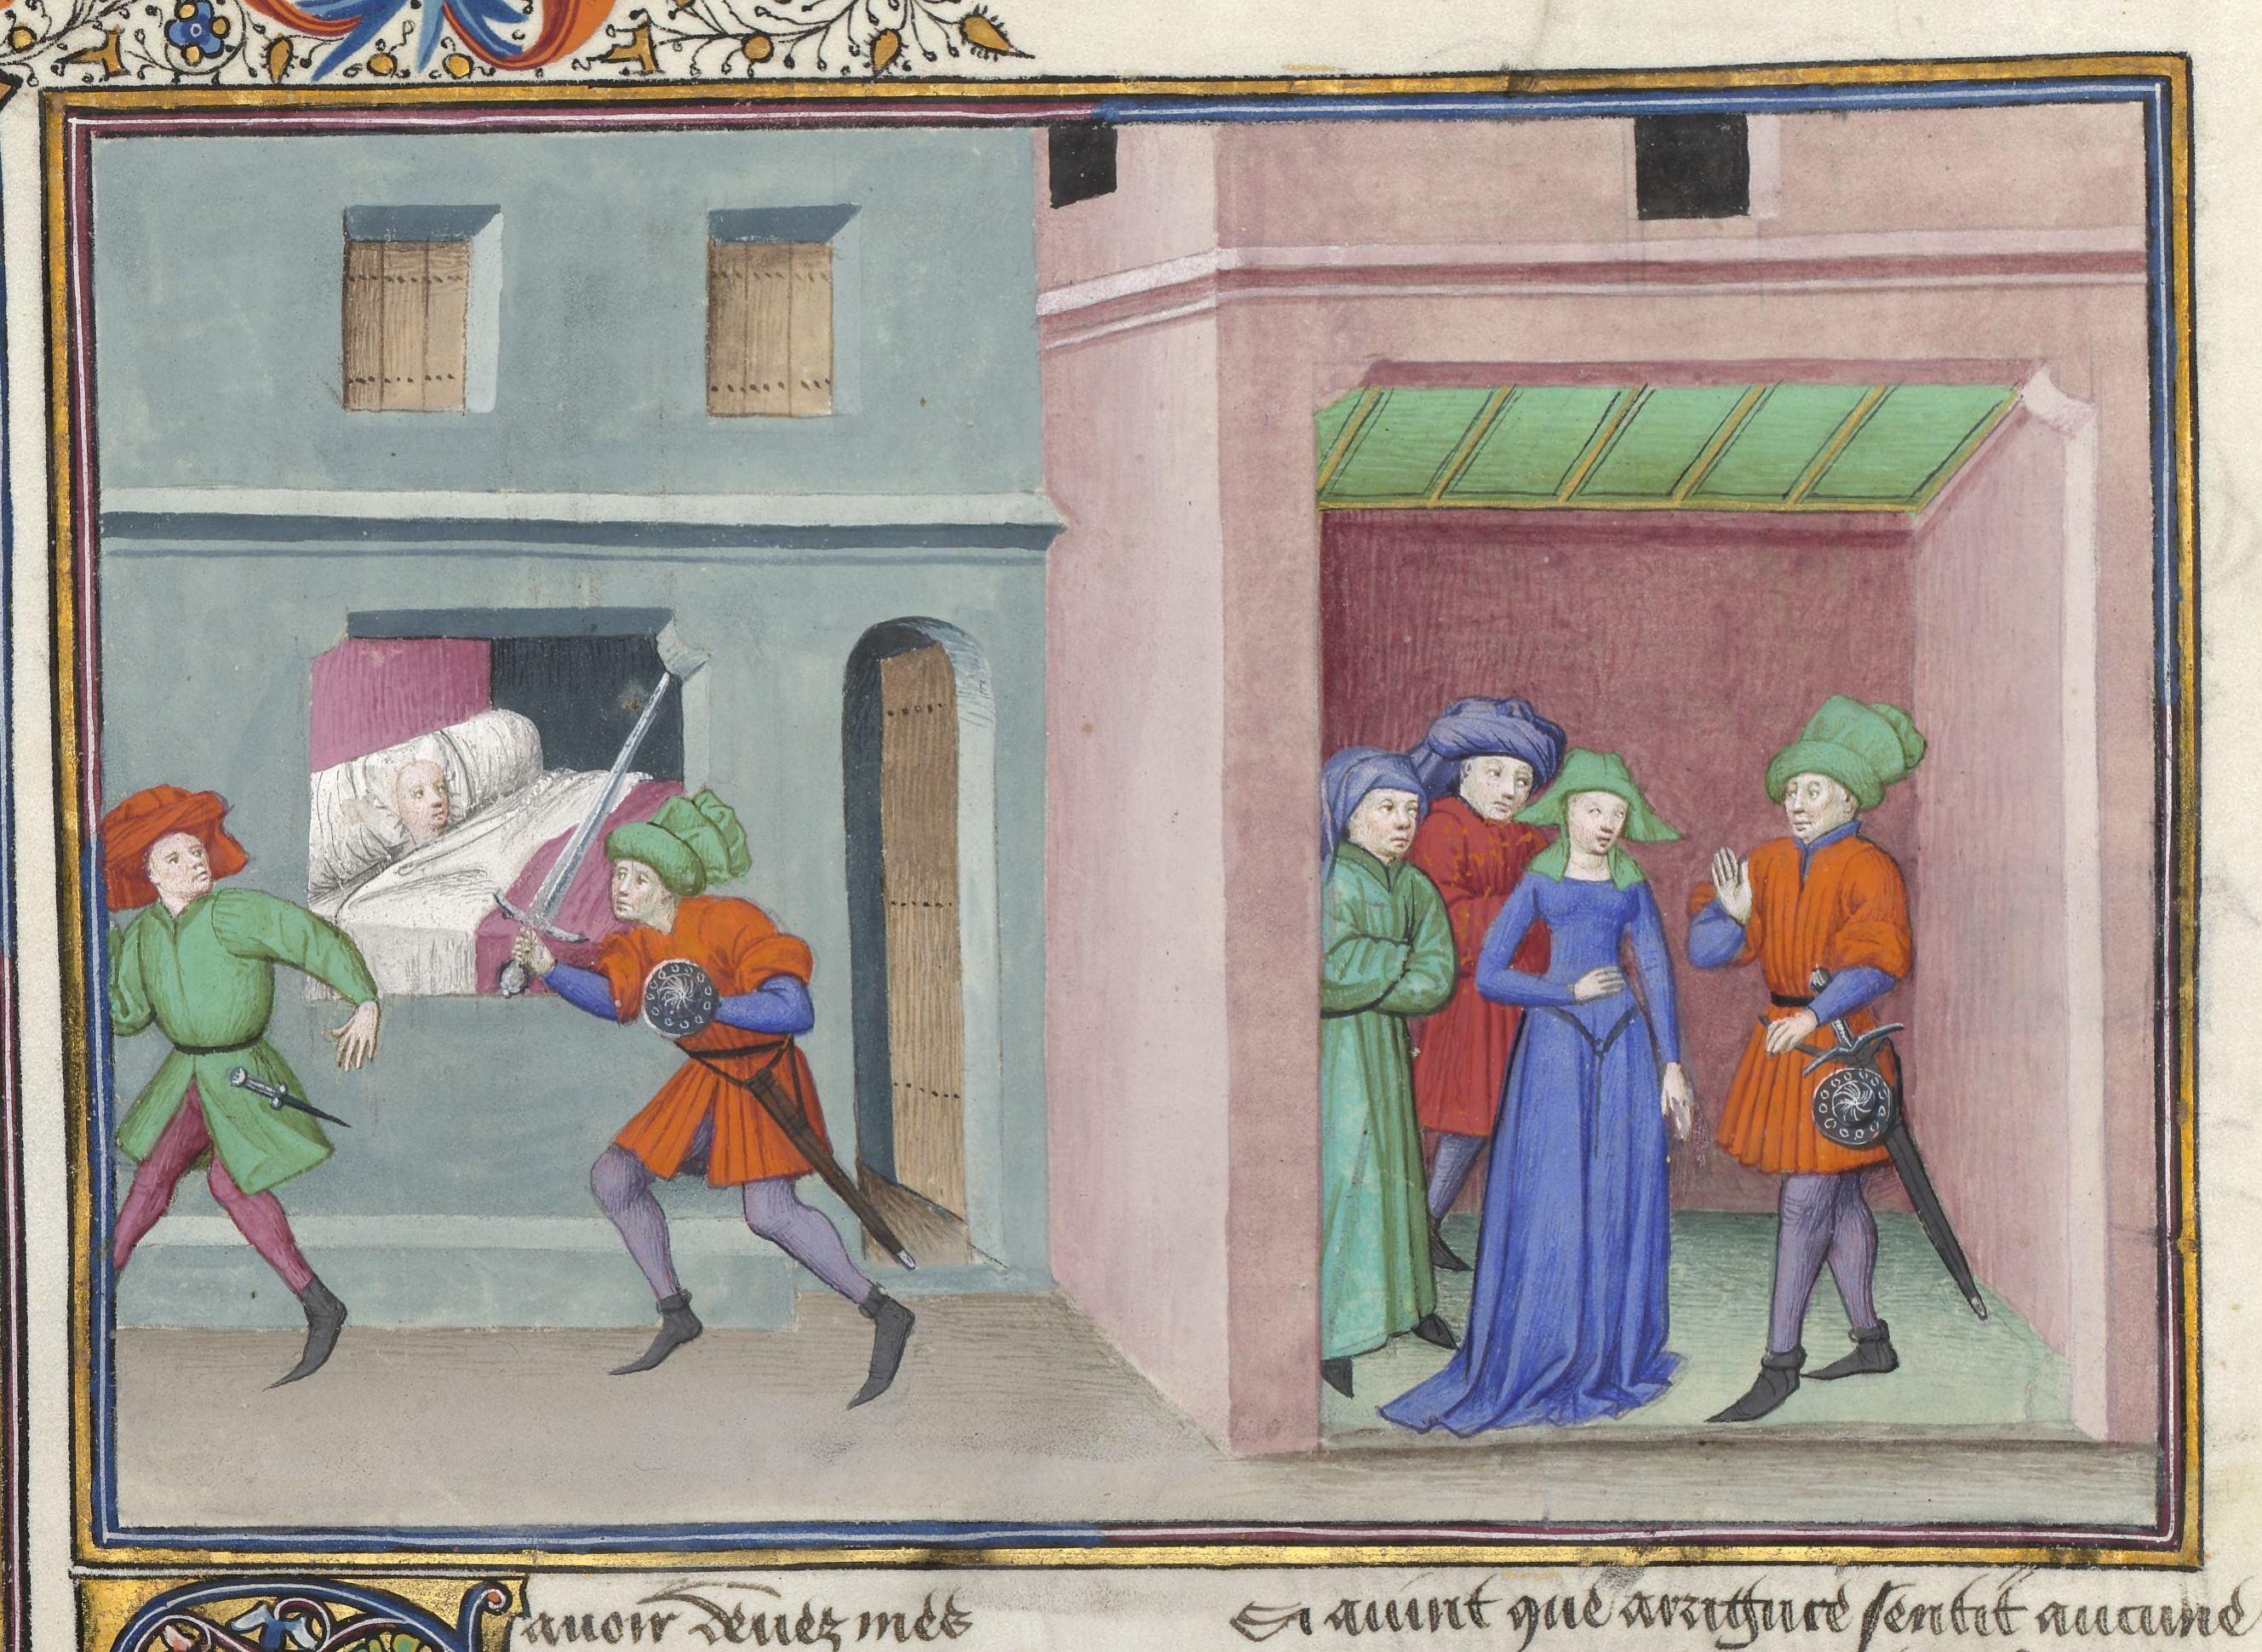 auoir deuez mes
Si auint que arriguce sentit aucune